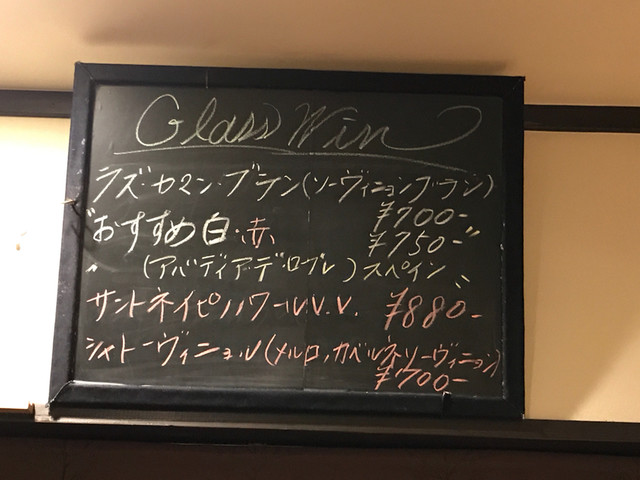 Glass Win
ラズ・カマン・ブラン(ソーヴィニョンブラン)
¥700-
"おすすめ白・赤 ¥750-"
(アバディア・デ・ロブレ)スペイン
サントネイピノノワールV.V. ¥880-
シャトーヴィニョル(メルロ,カベルネ・ソーヴィニョン)
¥700-